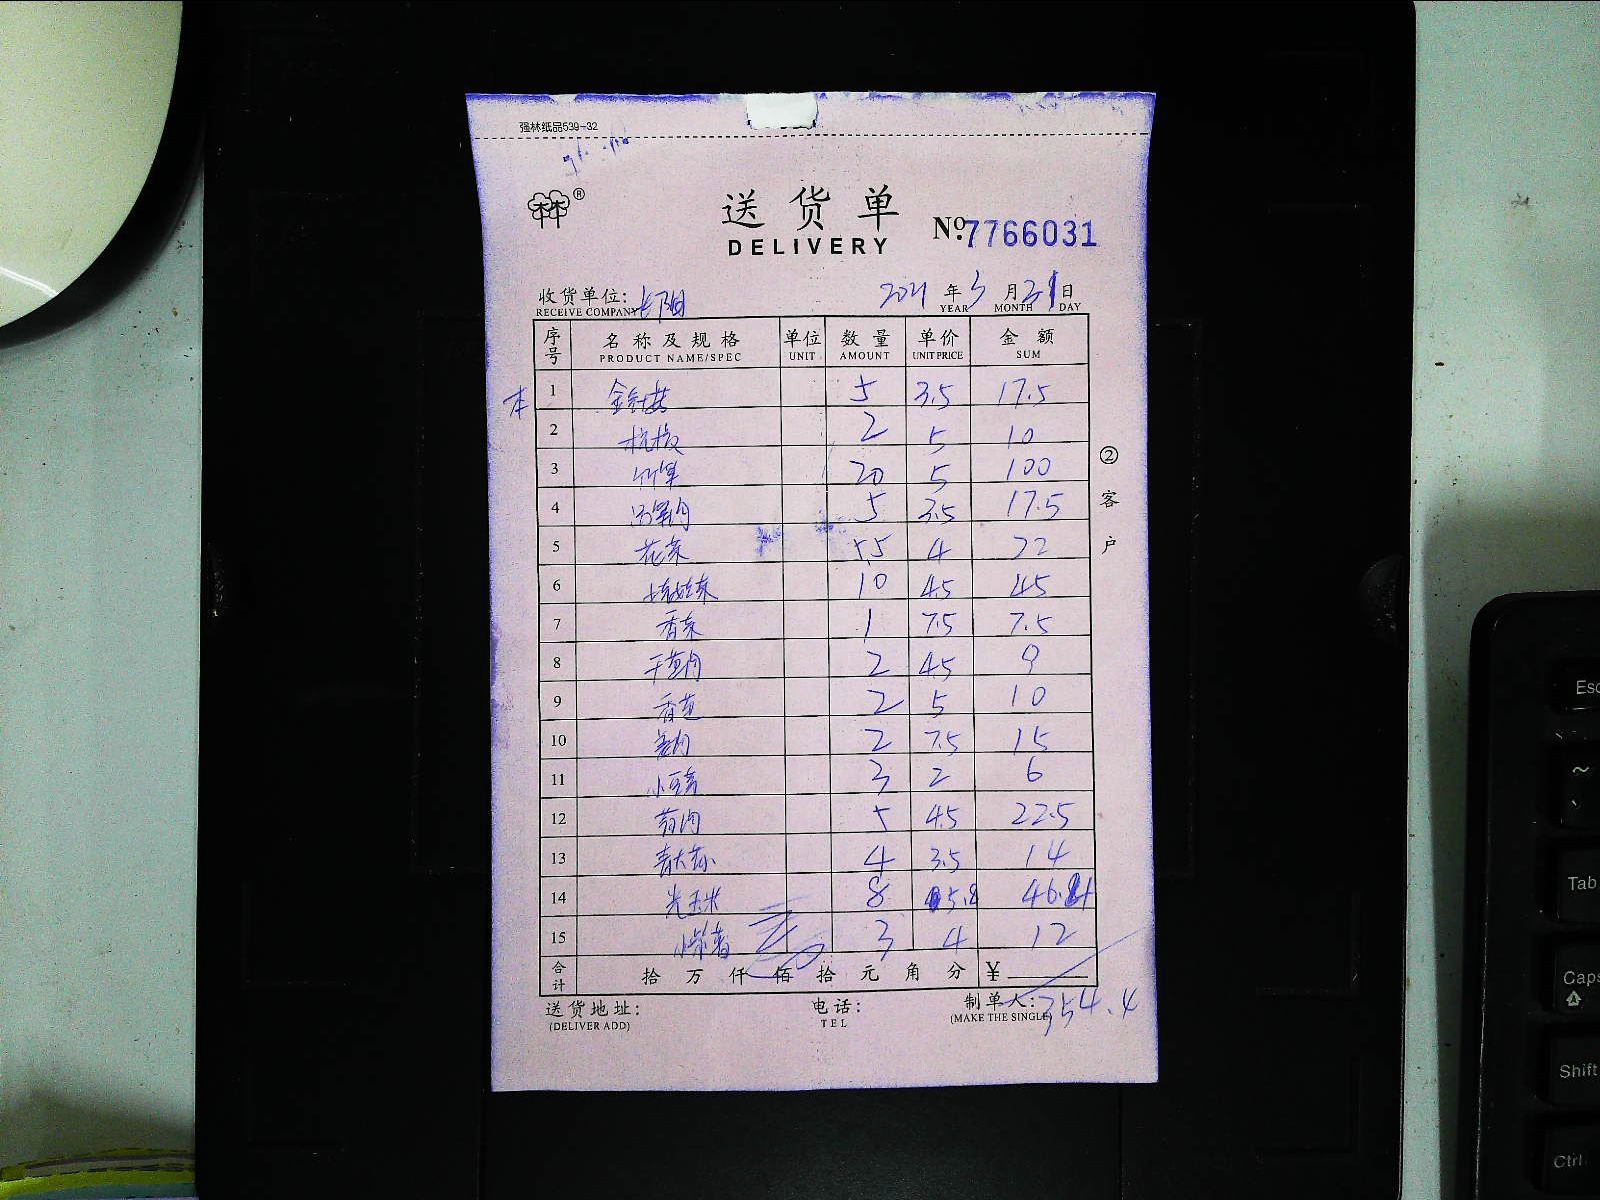 强林纸品539-32
林®
送货单
DELIVERY
№.7766031
收货单位:
2021年3月21日
RECEIVE COMPANY YEAR MONTH DAY
序号 名称及规格 单位 数量 单价 金额
PRODUCT NAME/SPEC UNIT AMOUNT UNIT PRICE SUM
本 1 金针菇 5 3.5 17.5
2 杭椒 2 5 10
3 竹笋 20 5 100
4 5 3.5 17.5
5 花菜 5.5 4 22
6 娃娃菜 10 4.5 45
7 香菜 1 7.5 7.5
8 2 4.5 9
9 香芹 2 5 10
10 姜肉 2 7.5 15
11 3 2 6
12 5 4.5 22.5
13 4 3.5 14
14 光玉米 8 5.8 46.4
15 3 4 12
合计 拾万仟佰拾元角分 ¥
送货地址: 电话: 制单人: 354.4
(DELIVER ADD) TEL (MAKE THE SINGLE)
②客户
Esc
~
、
Tab
Caps
Shift
Ctrl